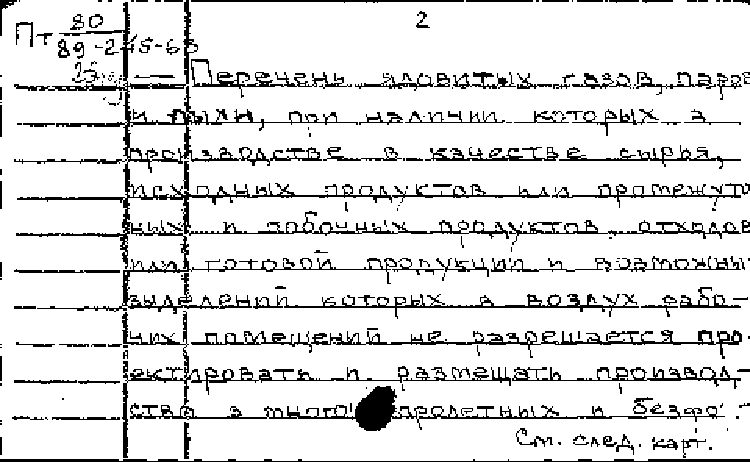 2
Пт 80
89-2415-63
Перечень ядовитых газов, паров
и пыли, при наличии которых в
производстве в качестве сырья,
исходных продуктов или промежуто
ных и побочных продуктов, отходов
или готовой продукции и возможных
выделений которых в воздух рабо-
чих помещений не разрешается про-
ектировать и размещать производ-
ства в много пролетных и безфо
См. след. карт.